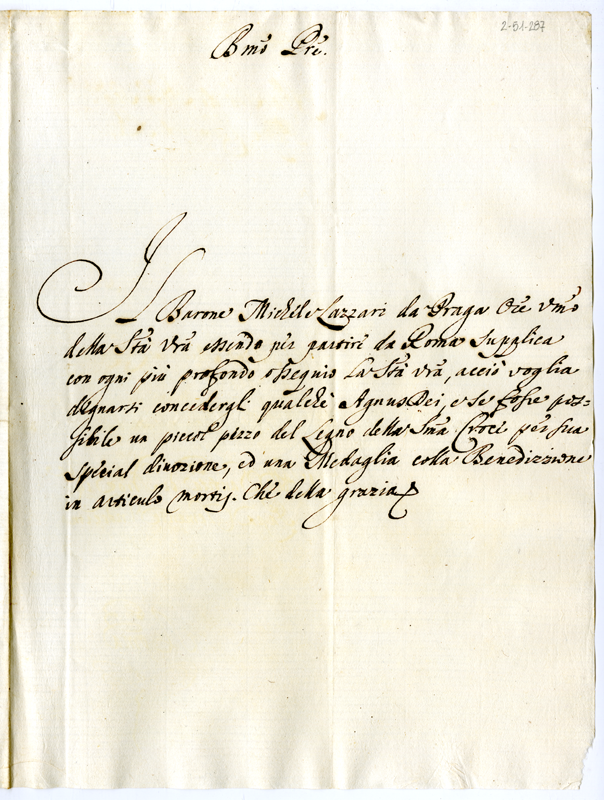 2-51-287
Bmõ Prẽ.
Il Barone Michele Lazzari da Praga Orẽ Vmõ
della Stà Vrã essendo per partire da Roma supplica
con ogni più profondo ossequio La Stà Vrã, acciò voglia
degnarsi concedergl qualche Agnus Dei, e se fosse pos=
sibile un piccol pezzo del Legno della Smã Croce per sua
special divozione, ed una Medaglia colla Benedizzione
in articulo mortis. Che della grazia